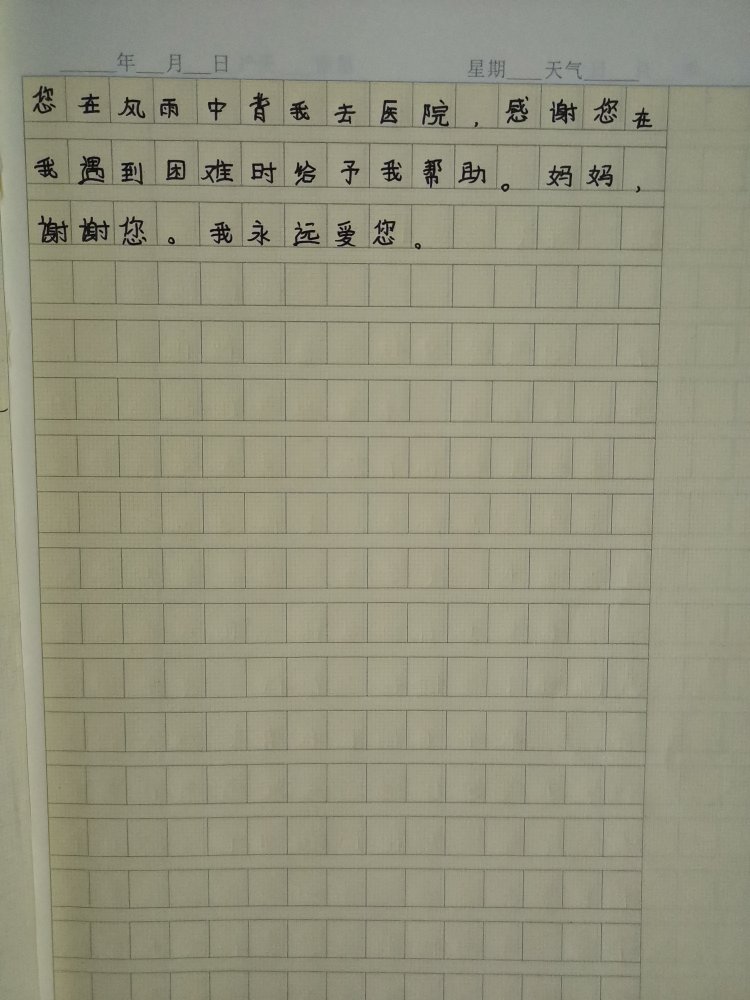 年 月 日 星期 天气
您在风雨中背我去医院，感谢您在
我遇到困难时给予我帮助。妈妈，
谢谢您。我永远爱您。